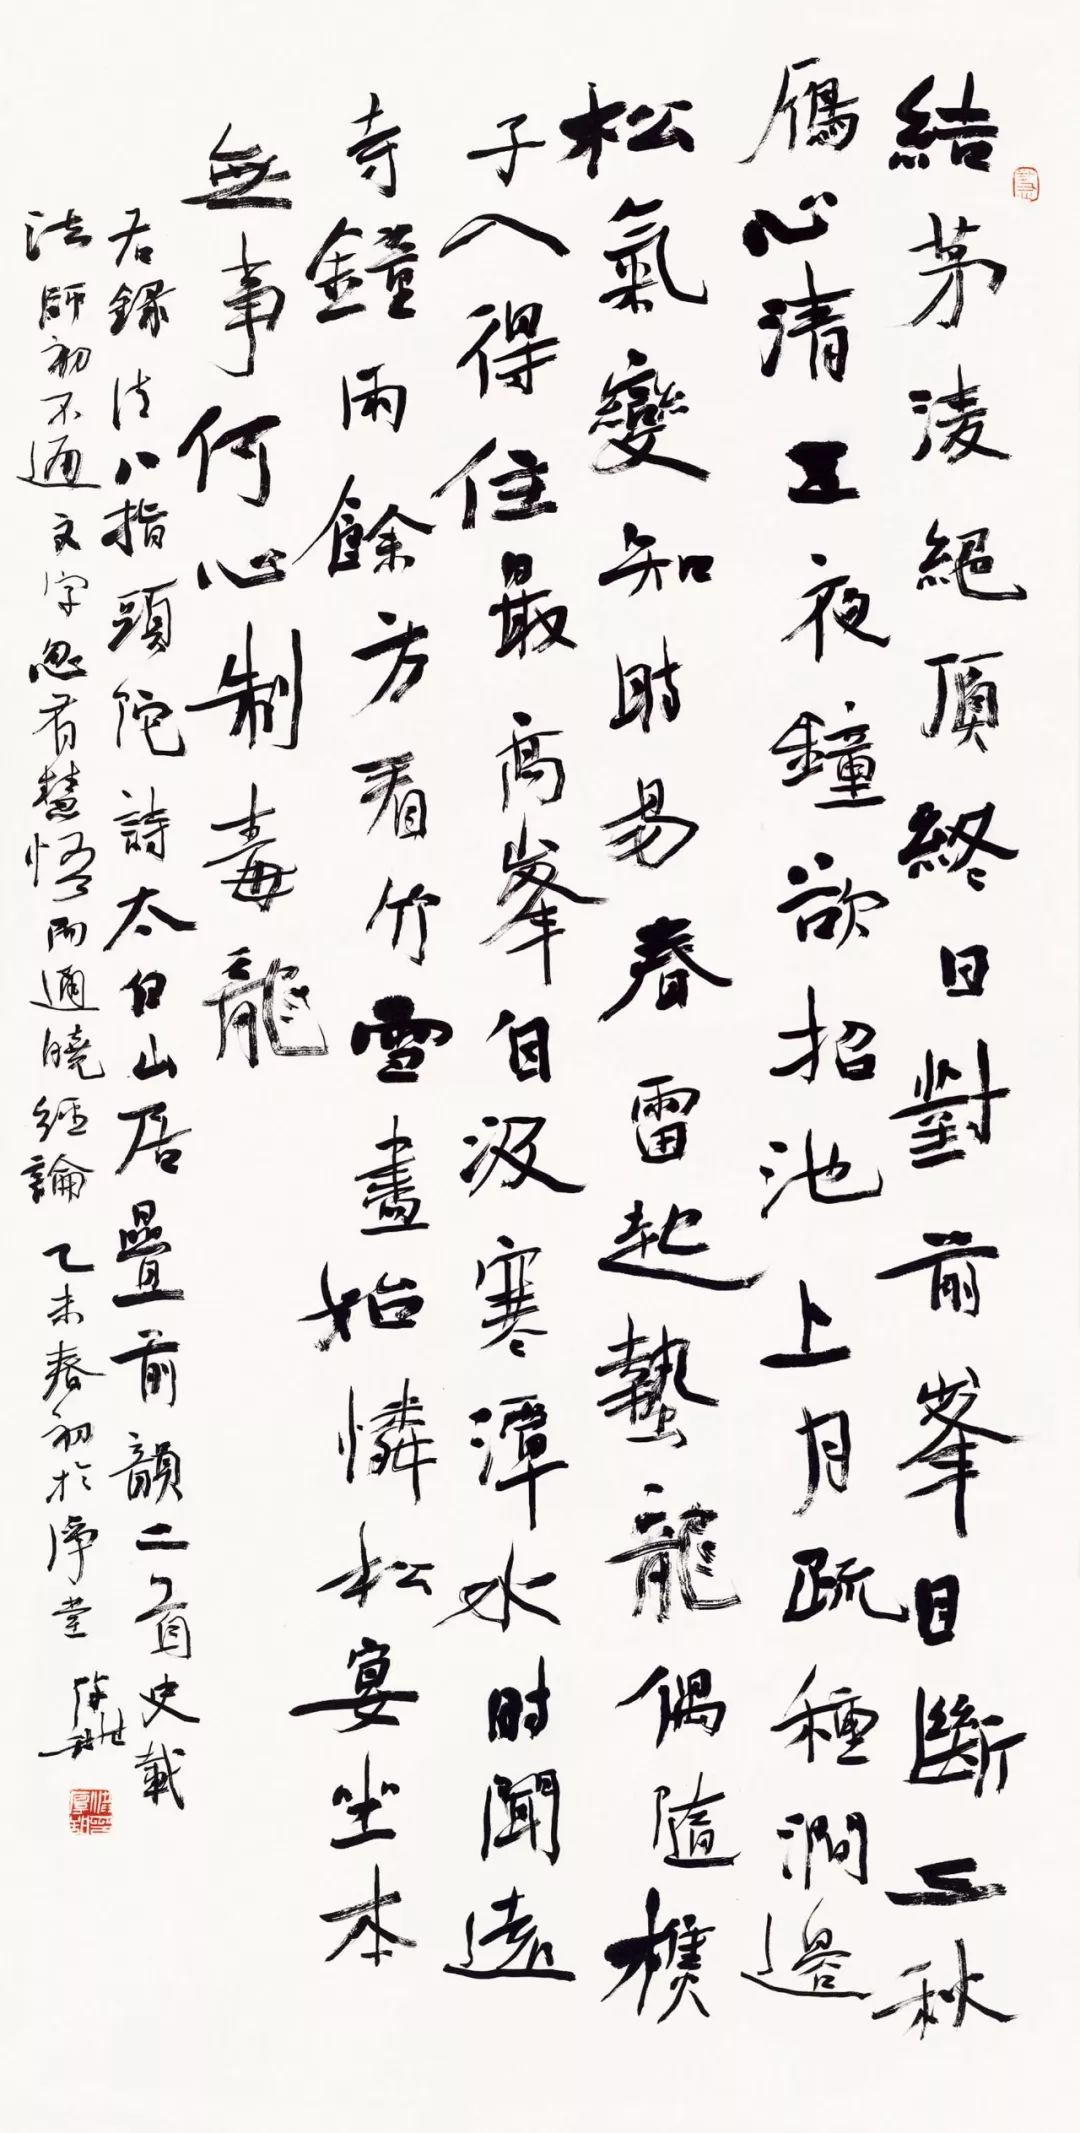 結茅淩絕頂終日對前峯目斷三秋
鴈心清五夜鐘欲招池上月疏種澗邊
松氣變知時易春雷起蟄龍偶隨樵
子入得住最高峯自汲寒潭水時聞遠
寺鐘雨餘方看竹雪盡始憐松宴坐本
無事何心制毒龍
右錄清八指頭陀詩太白山居疊前韻二首史載
法師初不通文字忽有慧悟而通曉經論 乙未春初於淨堂